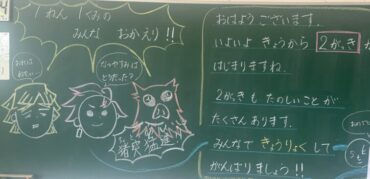 1ねん 1くみの
みんな おかえり!!
なつやすみは
どうだった?
猪突猛進
おはよう ございます.
いよいよ きょうから 2がっき が
はじまりますね.
2がっき も たのしいこと が
たくさん あります.
みんなで きょうりょく して
がんばり ましょう!!